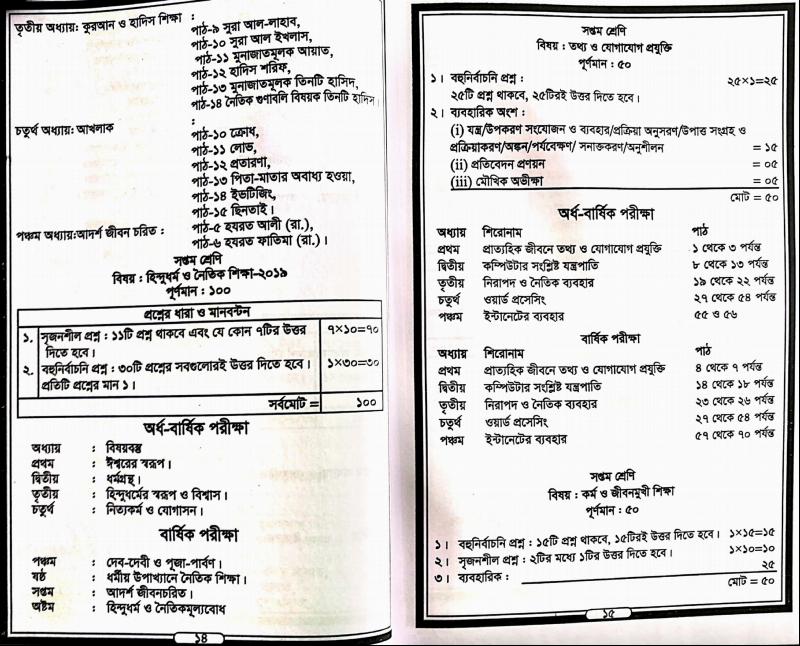 তৃতীয় অধ্যায়: কুরআন ও হাদিস শিক্ষা :
পাঠ-৯ সুরা আল-লাহাব,
পাঠ-১০ সুরা আল ইখলাস,
পাঠ-১১ মুনাজাতমূলক আয়াত,
পাঠ-১২ হাদিস শরিফ,
পাঠ-১৩ মুনাজাতমূলক তিনটি হাসিদ,
পাঠ-১৪ নৈতিক গুণাবলি বিষয়ক তিনটি হাদিস।
চতুর্থ অধ্যায়: আখলাক :
পাঠ-১০ ক্রোধ,
পাঠ-১১ লোভ,
পাঠ-১২ প্রতারণা,
পাঠ-১৩ পিতা-মাতার অবাধ্য হওয়া,
পাঠ-১৪ ইভটিজিং,
পাঠ-১৫ ছিনতাই।
পঞ্চম অধ্যায়:আদর্শ জীবন চরিত : পাঠ-৫ হযরত আলী (রা.),
পাঠ-৬ হযরত ফাতিমা (রা.)।
সপ্তম শ্রেণি
বিষয় : হিন্দুধর্ম ও নৈতিক শিক্ষা-২০১৯
পূর্ণমান : ১০০
প্রশ্নের ধারা ও মানবন্টন
১. সৃজনশীল প্রশ্ন : ১১টি প্রশ্ন থাকবে এবং যে কোন ৭টির উত্তর ৭×১০=৭০
দিতে হবে।
২. বহুনির্বাচনি প্রশ্ন : ৩০টি প্রশ্নের সবগুলোরই উত্তর দিতে হবে। ১×৩০=৩০
প্রতিটি প্রশ্নের মান ১।
সর্বমোট = ১০০
অর্ধ-বার্ষিক পরীক্ষা
অধ্যায় : বিষয়বস্তু
প্রথম : ঈশ্বরের স্বরূপ।
দ্বিতীয় : ধর্মগ্রন্থ।
তৃতীয় : হিন্দুধর্মের স্বরূপ ও বিশ্বাস।
চতুর্থ : নিত্যকর্ম ও যোগাসন।
বার্ষিক পরীক্ষা
পঞ্চম : দেব-দেবী ও পূজা-পার্বণ।
ষষ্ঠ : ধর্মীয় উপাখ্যানে নৈতিক শিক্ষা।
সপ্তম : আদর্শ জীবনচরিত।
অষ্টম : হিন্দুধর্ম ও নৈতিকমূল্যবোধ
১৪
সপ্তম শ্রেণি
বিষয় : তথ্য ও যোগাযোগ প্রযুক্তি
পূর্ণমান : ৫০
১। বহুনির্বাচনি প্রশ্ন : ২৫×১=২৫
২৫টি প্রশ্ন থাকবে, ২৫টিরই উত্তর দিতে হবে।
২। ব্যবহারিক অংশ :
(i) যন্ত্র/উপকরণ সংযোজন ও ব্যবহার/প্রক্রিয়া অনুসরণ/উপাত্ত সংগ্রহ ও
প্রক্রিয়াকরণ/অঙ্কন/পর্যবেক্ষণ/ সনাক্তকরণ/অনুশীলন = ১৫
(ii) প্রতিবেদন প্রণয়ন = ০৫
(iii) মৌখিক অভীক্ষা = ০৫
মোট = ৫০
অর্ধ-বার্ষিক পরীক্ষা
অধ্যায় শিরোনাম পাঠ
প্রথম প্রাত্যহিক জীবনে তথ্য ও যোগাযোগ প্রযুক্তি ১ থেকে ৩ পর্যন্ত
দ্বিতীয় কম্পিউটার সংশ্লিষ্ট যন্ত্রপাতি ৮ থেকে ১৩ পর্যন্ত
তৃতীয় নিরাপদ ও নৈতিক ব্যবহার ১৯ থেকে ২২ পর্যন্ত
চতুর্থ ওয়ার্ড প্রসেসিং ২৭ থেকে ৫৪ পর্যন্ত
পঞ্চম ইন্টানেটের ব্যবহার ৫৫ ও ৫৬
বার্ষিক পরীক্ষা
অধ্যায় শিরোনাম পাঠ
প্রথম প্রাত্যহিক জীবনে তথ্য ও যোগাযোগ প্রযুক্তি ৪ থেকে ৭ পর্যন্ত
দ্বিতীয় কম্পিউটার সংশ্লিষ্ট যন্ত্রপাতি ১৪ থেকে ১৮ পর্যন্ত
তৃতীয় নিরাপদ ও নৈতিক ব্যবহার ২৩ থেকে ২৬ পর্যন্ত
চতুর্থ ওয়ার্ড প্রসেসিং ২৭ থেকে ৫৪ পর্যন্ত
পঞ্চম ইন্টানেটের ব্যবহার ৫৭ থেকে ৭০ পর্যন্ত
সপ্তম শ্রেণি
বিষয় : কর্ম ও জীবনমুখী শিক্ষা
পূর্ণমান : ৫০
১। বহুনির্বাচনি প্রশ্ন : ১৫টি প্রশ্ন থাকবে, ১৫টিরই উত্তর দিতে হবে। ১×১৫=১৫
২। সৃজনশীল প্রশ্ন : ২টির মধ্যে ১টির উত্তর দিতে হবে। ১×১০=১০
৩। ব্যবহারিক : ২৫
মোট = ৫০
১৫